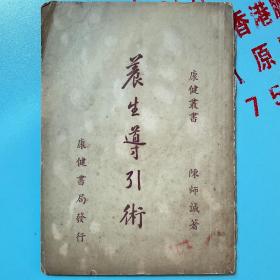 康健叢書
陳師誠著
養生導引術
康健書局發行
香港
原
75